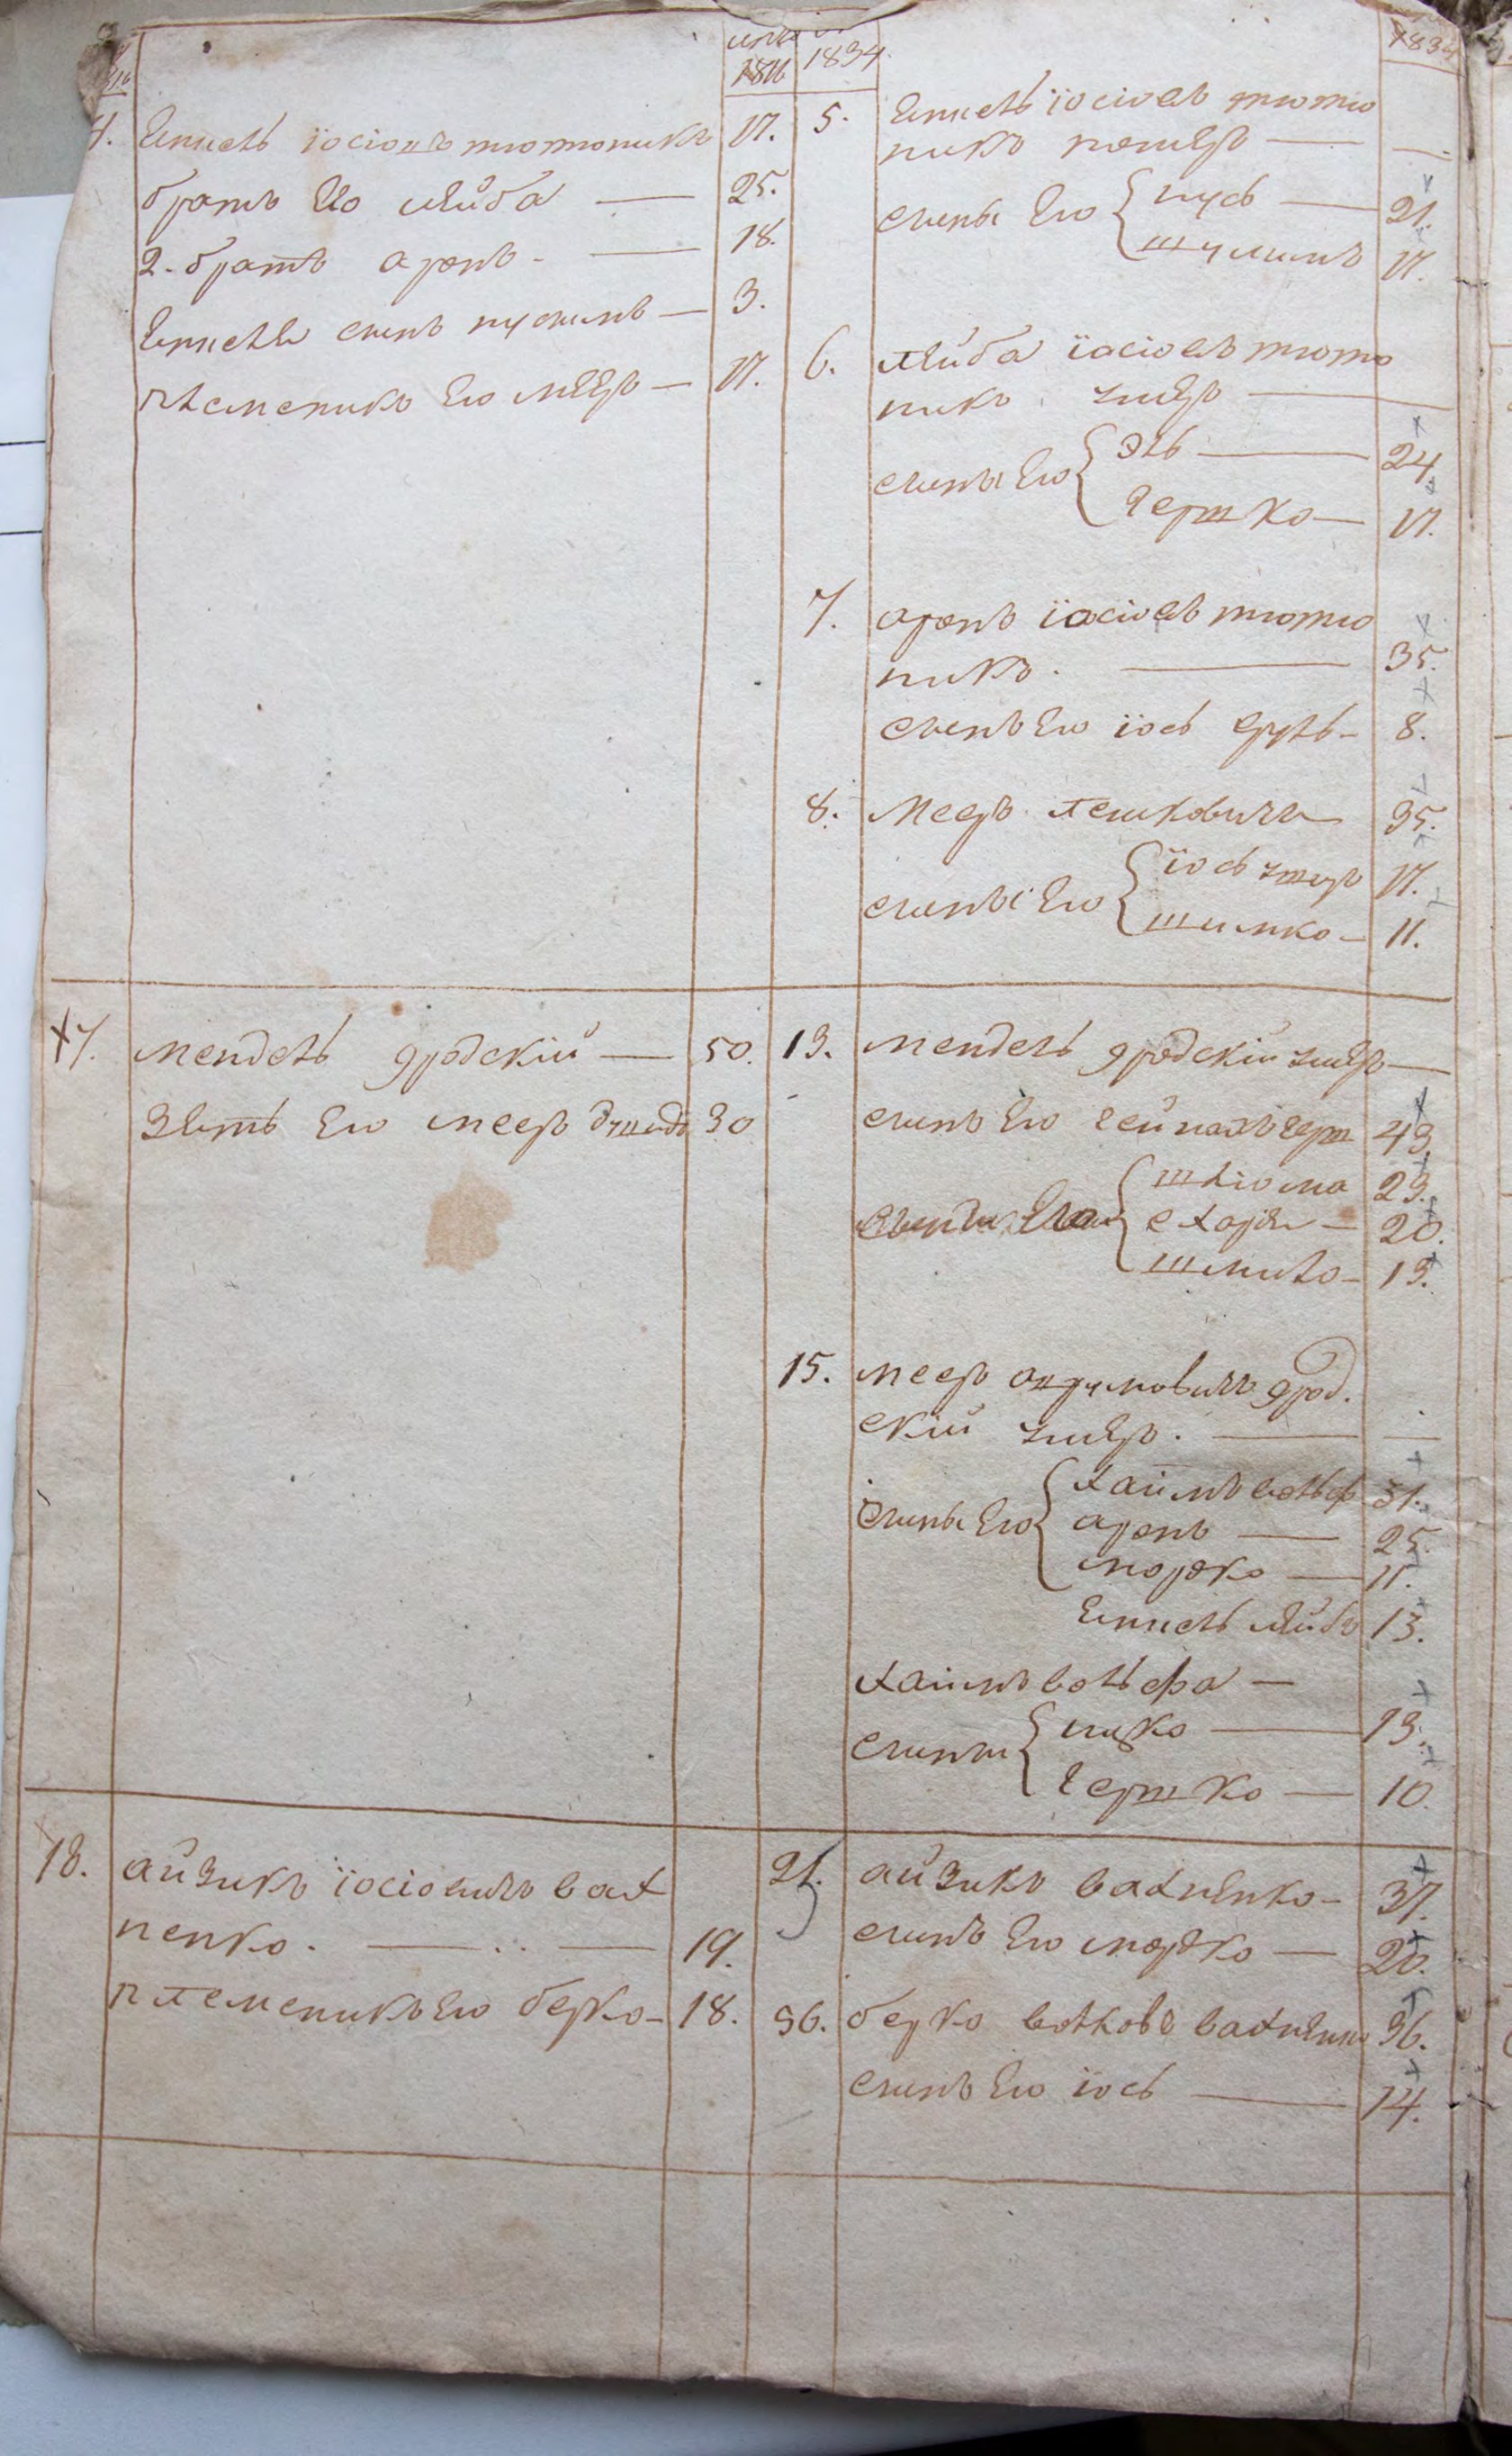 1816
1834
183
4. Епшель Іосіовъ тютюникъ 17.
братъ Его Лейба — 25.
2. братъ аронъ. — 18.
Епшеля сынъ нусынъ — 3.
племеникъ Его мееръ — 17.
5. Епшель Іосіовъ тютю
никъ померъ — —
сыны Его { нусь — 21.
шулимъ 17.
6. Лейба Іосіовъ тютю
никъ умеръ —
сыны Его { эль — 24.
Гершко — 17.
7. аронъ Іосіовъ тютю
никъ. — 35.
сынъ Его Іось сруль — 8.
8. Мееръ Лешковичъ 35.
сыны Его { Іось 17.
шимко — 11.
17. Мендель гродскій — 50.
зять Его мееръ 30
13. Мендель гродскій умеръ —
сынъ Его Гейнахъ Герш 43.
Его { шліома 23.
с харя — 20.
шмило — 13.
15. мееръ грод.
скій умеръ. — —
сыны Его { хаимъ вольф 31.
аронъ — 25.
мордко — 11.
Епшель Лейба 13.
хаимъ вольфа —
сыны { ицко — 13.
Гершко — 10.
18. айзикъ Іосіовичъ вах
ненко. — .. — 19.
племеникъ Его берко — 18.
21. айзикъ вахненко — 37.
сынъ Его мордко — 20.
36. берко волковъ вахненко 36.
сынъ Его Іось — 14.